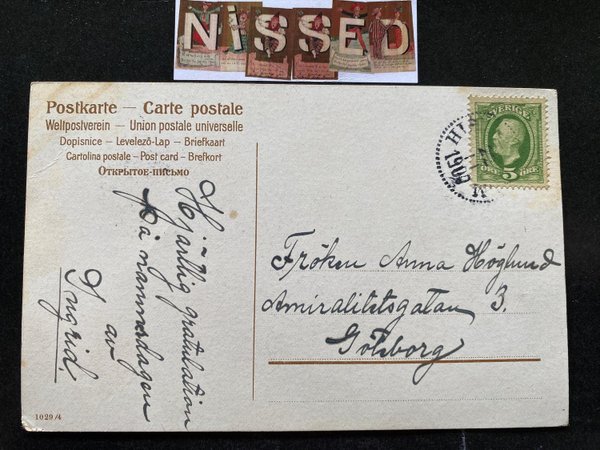 NiSSED
Postkarte — Carte postale
Weltpostverein — Union postale universelle
Dopisnice — Levelező-Lap — Briefkaart
Cartolina postale — Post card — Brefkort
Открытое-письмо
SVERIGE
ÖRE 5 ÖRE
1909
Hjärtlig gratulation
på namnsdagen
av
Ingrid.
Fröken Anna Höglund
Amiralitetsgatan 3.
Göteborg
1029/4